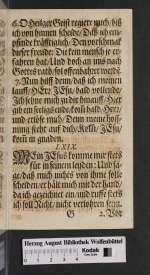 6. O Heilger Geist regiere mich/ biß
ich von hinnen scheide/ Daß ich em-
pfinde kräfftiglich/ Den vorschmak
darser freude: Die kein mensch je er-
fahren hat/ Und doch an uns nach
Gottes raht/ sol offenbahret werden.
7. Nun hilff denn/ daß ich meinen
lauff/ HErr JEsu bald vollende/
Ich seufze mich zu dir hinauf/ Her:
gib ein seeligs ende/ Kom bald/ HErr/
und erlöse mich/ Denn meine hoff-
nung steht auf dich/ Kom/ JEsu/
kom in gnaden.
LXIX.
MEin JEsus komme mir stets
für in seinem leiden: Und sa-
ge/ daß mich nichts von ihme solle
scheiden/ er hält mich mit der hand/
darin gezeichnet ein und ruffe stets
ich soll Nicht/ nicht verlohren seyn.
G 2. Vor
Herzog August Bibliothek Wolfenbüttel